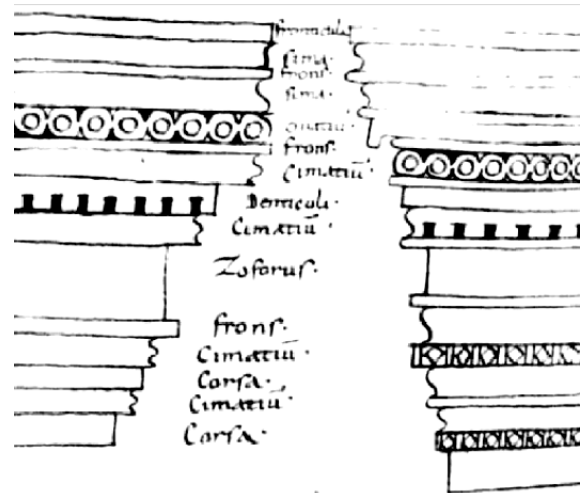 ſima
fronſ·
ſima
fronſ·
Cimatiū·
Denticuli·
Cimatiū·
Zoforus·
fronſ·
Cimatiū·
Corſa·
Cimatiū·
Corſa·